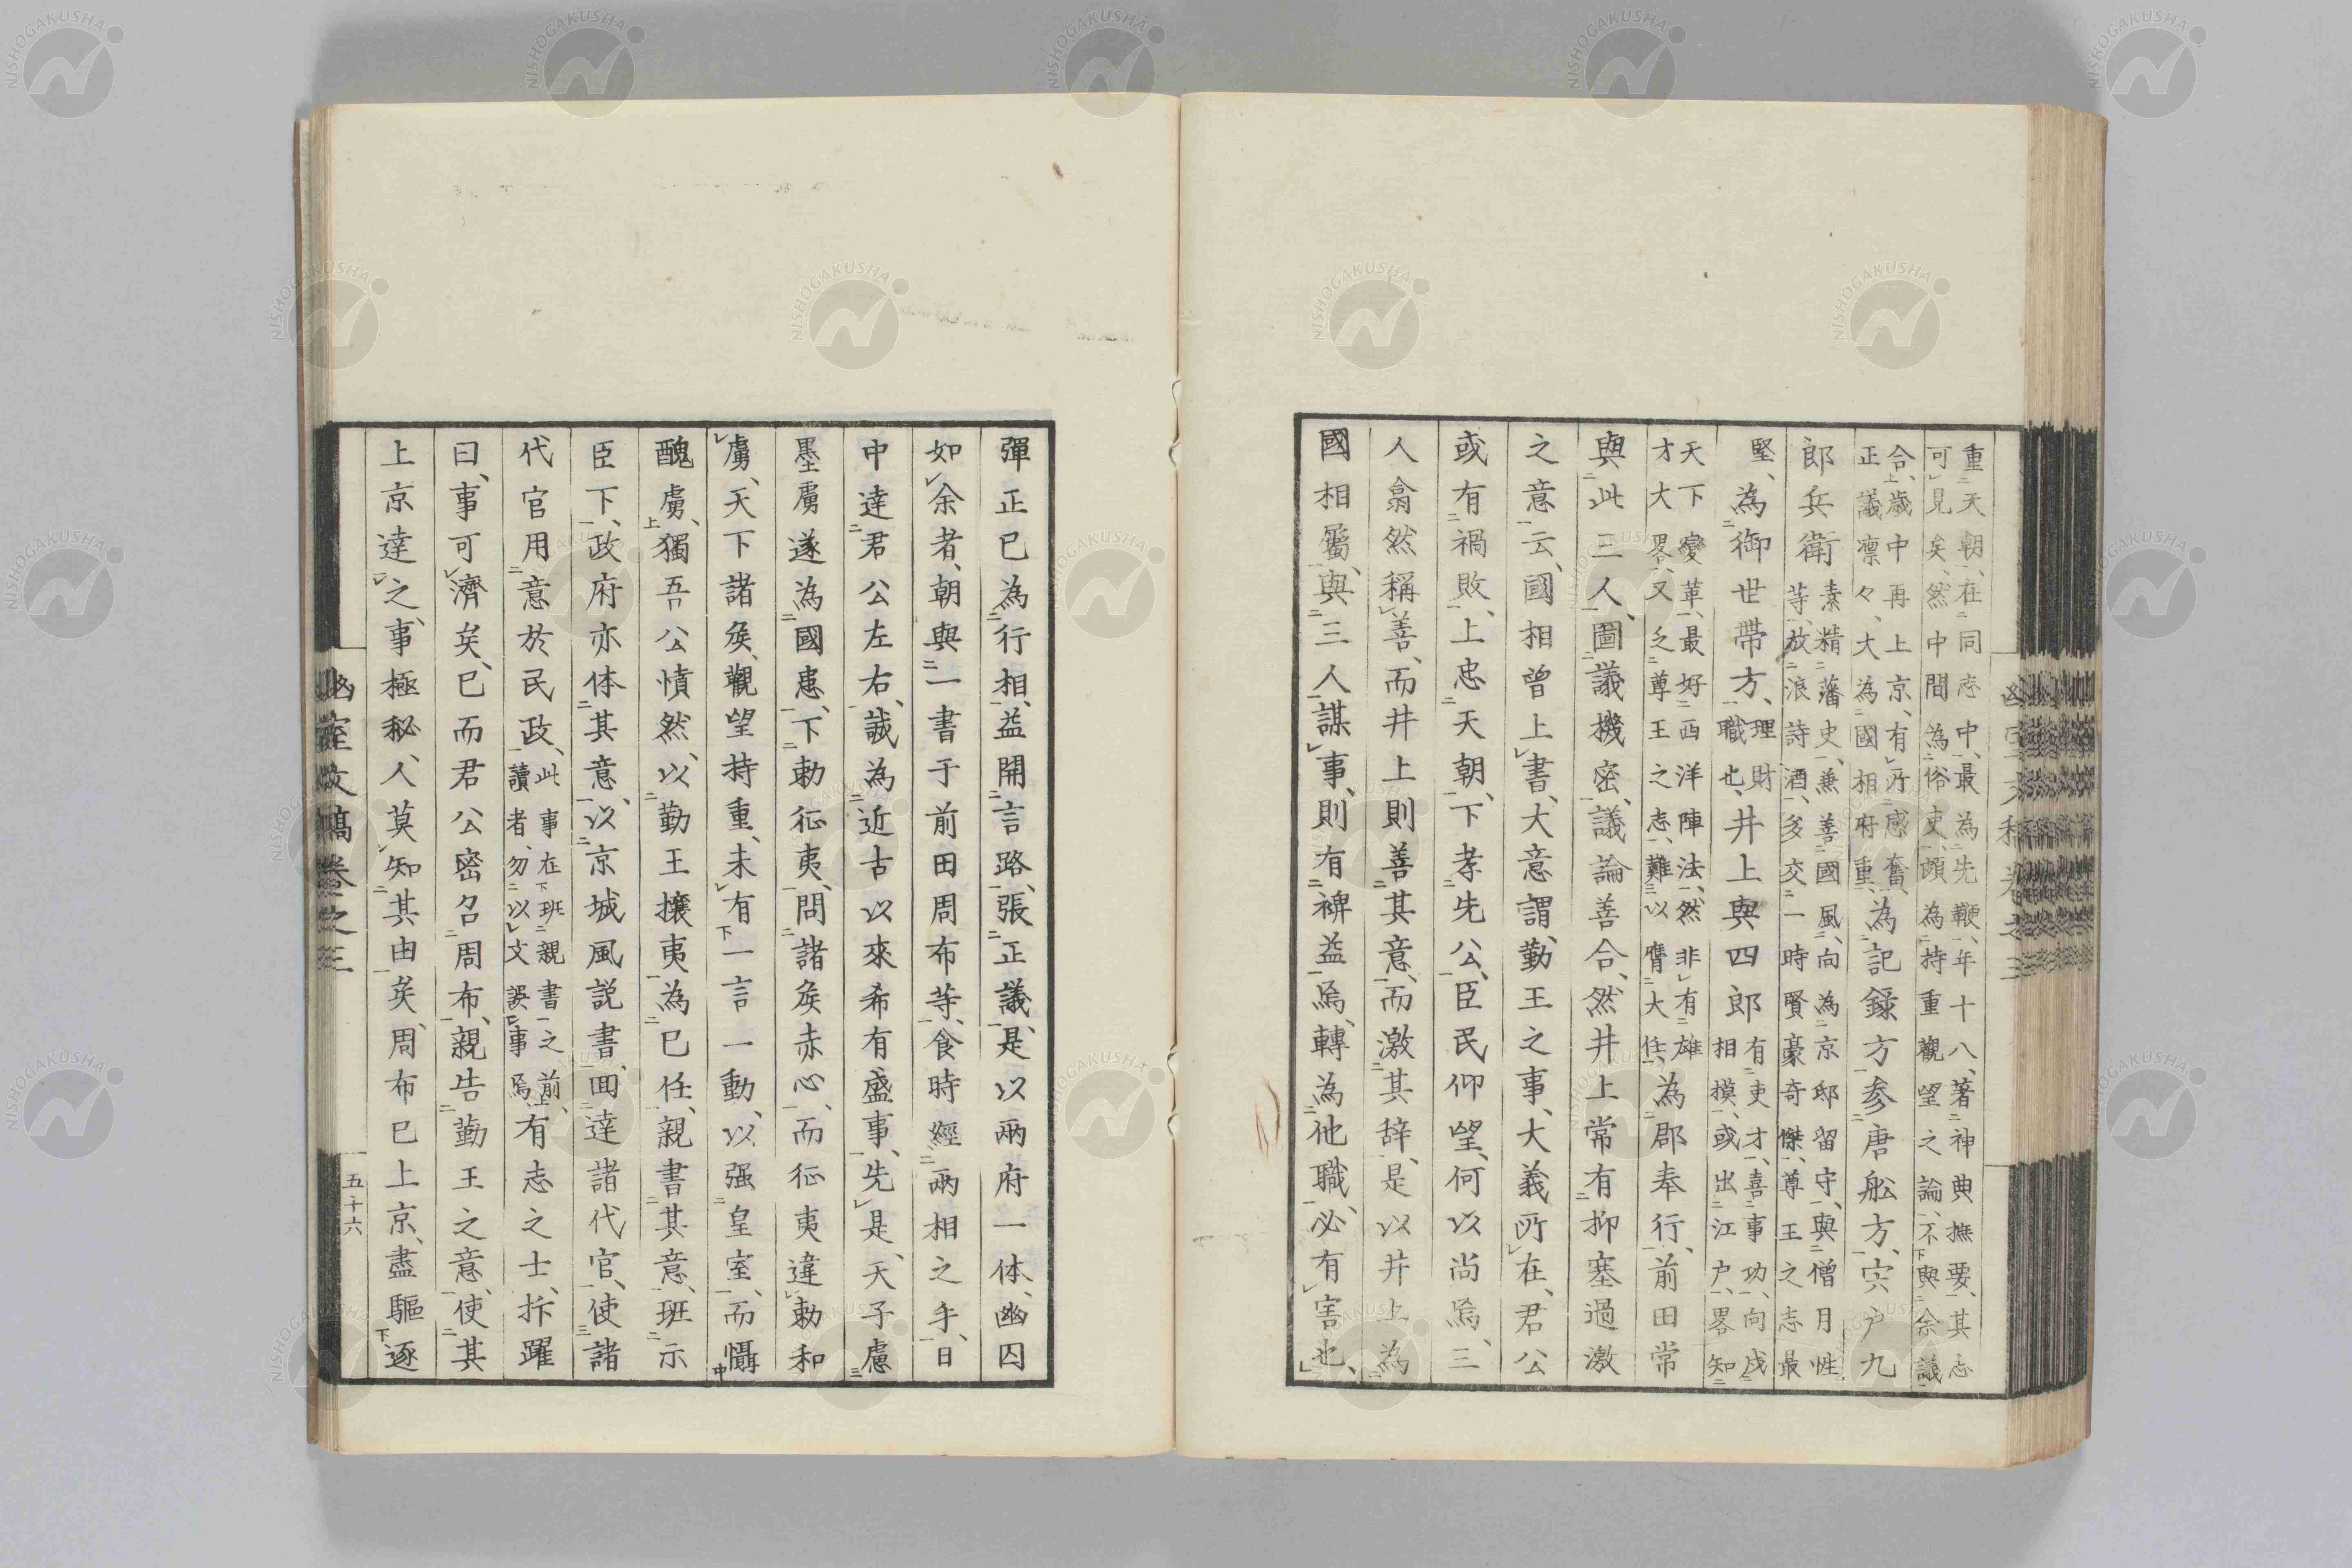 重天朝、在同志中、最為先鞭、年十八、著神典撫要、其志
可見矣、然中間為俗吏、頗為持重觀望之論、不與余議
合、歲中再上京、有所感奮、為記録方参唐舩方、宍戸九
正議凛々、大為國相府重、
郎兵衛素精藩史、兼善國風、向為京邸留守、與僧月性
等、放浪詩酒、多交一時賢豪奇傑、尊王之志最
堅、為御世帯方、理財職也、井上與四郎有吏才、喜事功、向戌
相摸、或出江戸、畧知
天下變革、最好西洋陣法、然非有雄
才大畧、又乏尊王之志、難以膺大任、為郡奉行、前田常
與此三人、圖議機密、議論善合、然井上常有抑塞過激
之意云、國相曽上書、大意謂、勤王之事、大義所在、君公
或有禍敗、上忠天朝、下孝先公、臣民仰望、何以尚焉、三
人翕然稱善、而井上則善其意、而激其辞、是以井上為
國相屬、與三人謀事、則有裨益焉、轉為他職、必有害也、
彈正已為行相、益開言路、張正議、是以兩府一体、幽囚
如余者、朝與一書于前田周布等、食時經兩相之手、日
中達君公左右、誠為近古以來希有盛事、先是、天子慮
墨虜遂為國患、下勅征夷、問諸矦赤心、而征夷違勅和
虜、天下諸矦、觀望持重、未有一言一動、以强皇室、而懾
醜虜、獨吾公憤然、以勤王攘夷為已任、親書其意、班示
臣下、政府亦体其意、以京城風説書、回達諸代官、使諸
代官用意於民政、此事在班親書之前、讀者、勿以文誤事焉、有志之士、抃躍
曰、事可濟矣、已而君公密召周布、親告勤王之意、使其
上京達之、事極秘、人莫知其由矣、周布已上京、盡驅逐
幽室文稿卷之三
五十六
NISHOGAKUSHA